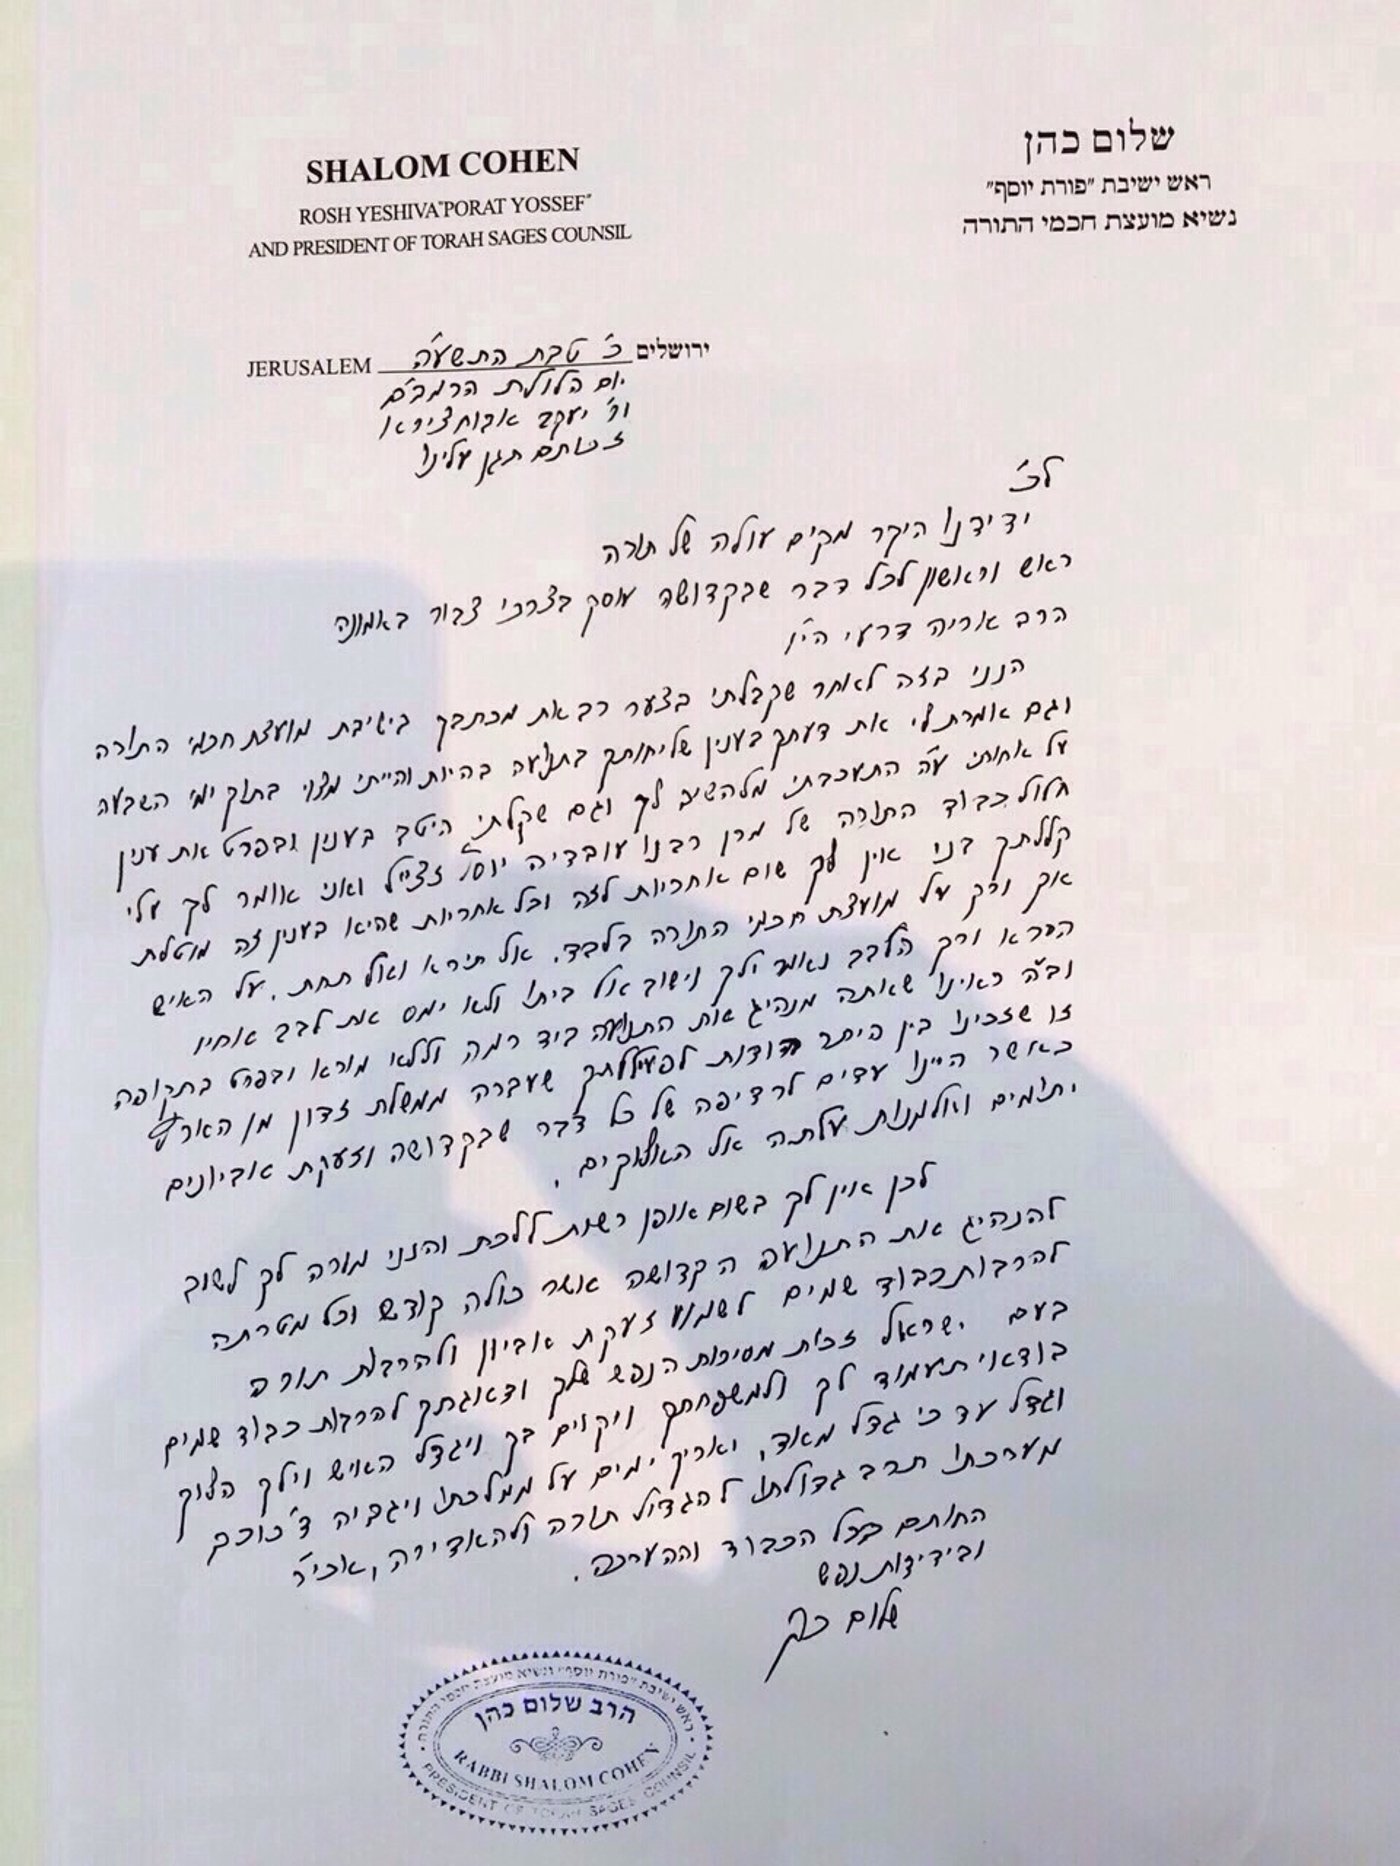 SHALOM COHEN
ROSH YESHIVA "PORAT YOSSEF"
AND PRESIDENT OF TORAH SAGES COUNSIL
שלום כהן
ראש ישיבת "פורת יוסף"
נשיא מועצת חכמי התורה
JERUSALEM כ' טבת התשע"ה ירושלים
יום הלולת הרמב"ם
ור' יעקב אבוחצירא
זכותם תגן עלינו
לכ'
ידידנו היקר מקים עולה של תורה
ראש וראשון לכל דבר שבקדושה עוסק בצרכי צבור באמונה
הרב אריה דרעי הי"ו
הנני בזה לאחר שקבלתי בצער רב את מכתבך בישיבת מועצת חכמי התורה
וגם אומרת לי את דעתך בענין שליחותך בתנועה בהיות והייתי מצוי בתוך ימי השבעה
על אחותי ע"ה התעכבתי מלהשיב לך וגם שקלתי היטב בענין ובפרט את ענין
חלול כבוד התורה של מרן רבנו עובדיה יוסף זצ"ל ואני אומר לך עלי
קללתך בני אין לך שום אחריות לזה וכל אחריות שהיא בענין זה מוטלת
אך ורק על מועצת חכמי התורה בלבד. אל תירא ואל תחת. על האיש
הירא ורך הלבב נאמר ילך וישוב אל ביתו ולא ימס את לבב אחיו
וב"ה ראינו שאתה מנהיג את התנועה ביד רמה וללא מורא ובפרט בתקופה
זו שזכינו בין היתר הודות לפעילתך שעברה ממשלת זדון מן הארץ
כאשר היינו עדים לרדיפה של כל דבר שבקדושה וזעקת אביונים
יתומים ואלמנות עלתה אל האלוקים.
לכן אין לך בשום אופן רשות ללכת והנני מורה לך לשוב
להנהיג את התנועה הקדושה אשר כולה קודש וכל מטרתה
להרבות כבוד שמים לשמוע זעקת אביון ולהרבות תורה
בעם ישראל זכות מסירות הנפש שלך ודאגתך להרבות כבוד שמים
בודאי תעמוד לך ולמשפחתך ויקוים בך ויגדל האיש וילך הלוך
וגדל עד כי גדל מאד, יאריך ימים על ממלכתו ויגביה ד' כוכב
מערכתו תרב גדולתו להגדיל תורה ולהאדירה, אכי"ר
החותם בכל הכבוד וההערכה.
ובידידות נפש
שלום כהן
ראש ישיבת "פורת יוסף" ונשיא מועצת חכמי התורה
הרב שלום כהן
RABBI SHALOM COHEN
PRESIDENT OF TORAH SAGES COUNSIL